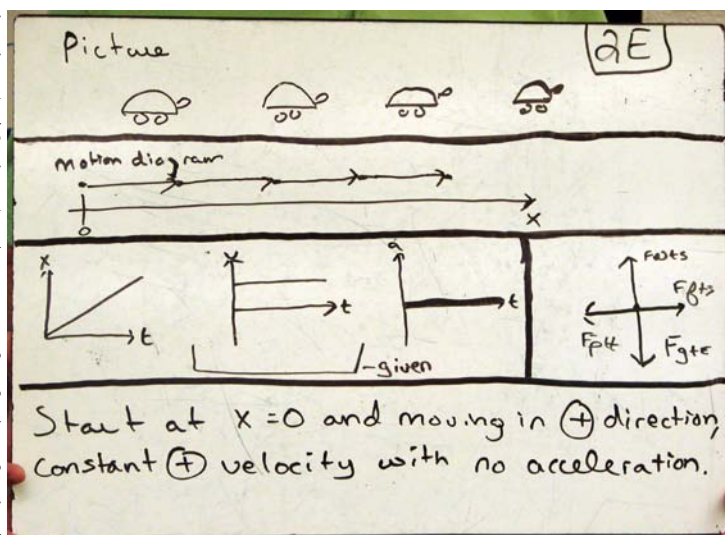 Picture
2E
motion diagram
0
x
x
t
t
a
t
-given
Start at X=0 and moving in ⊕ direction,
constant ⊕ velocity with no acceleration.